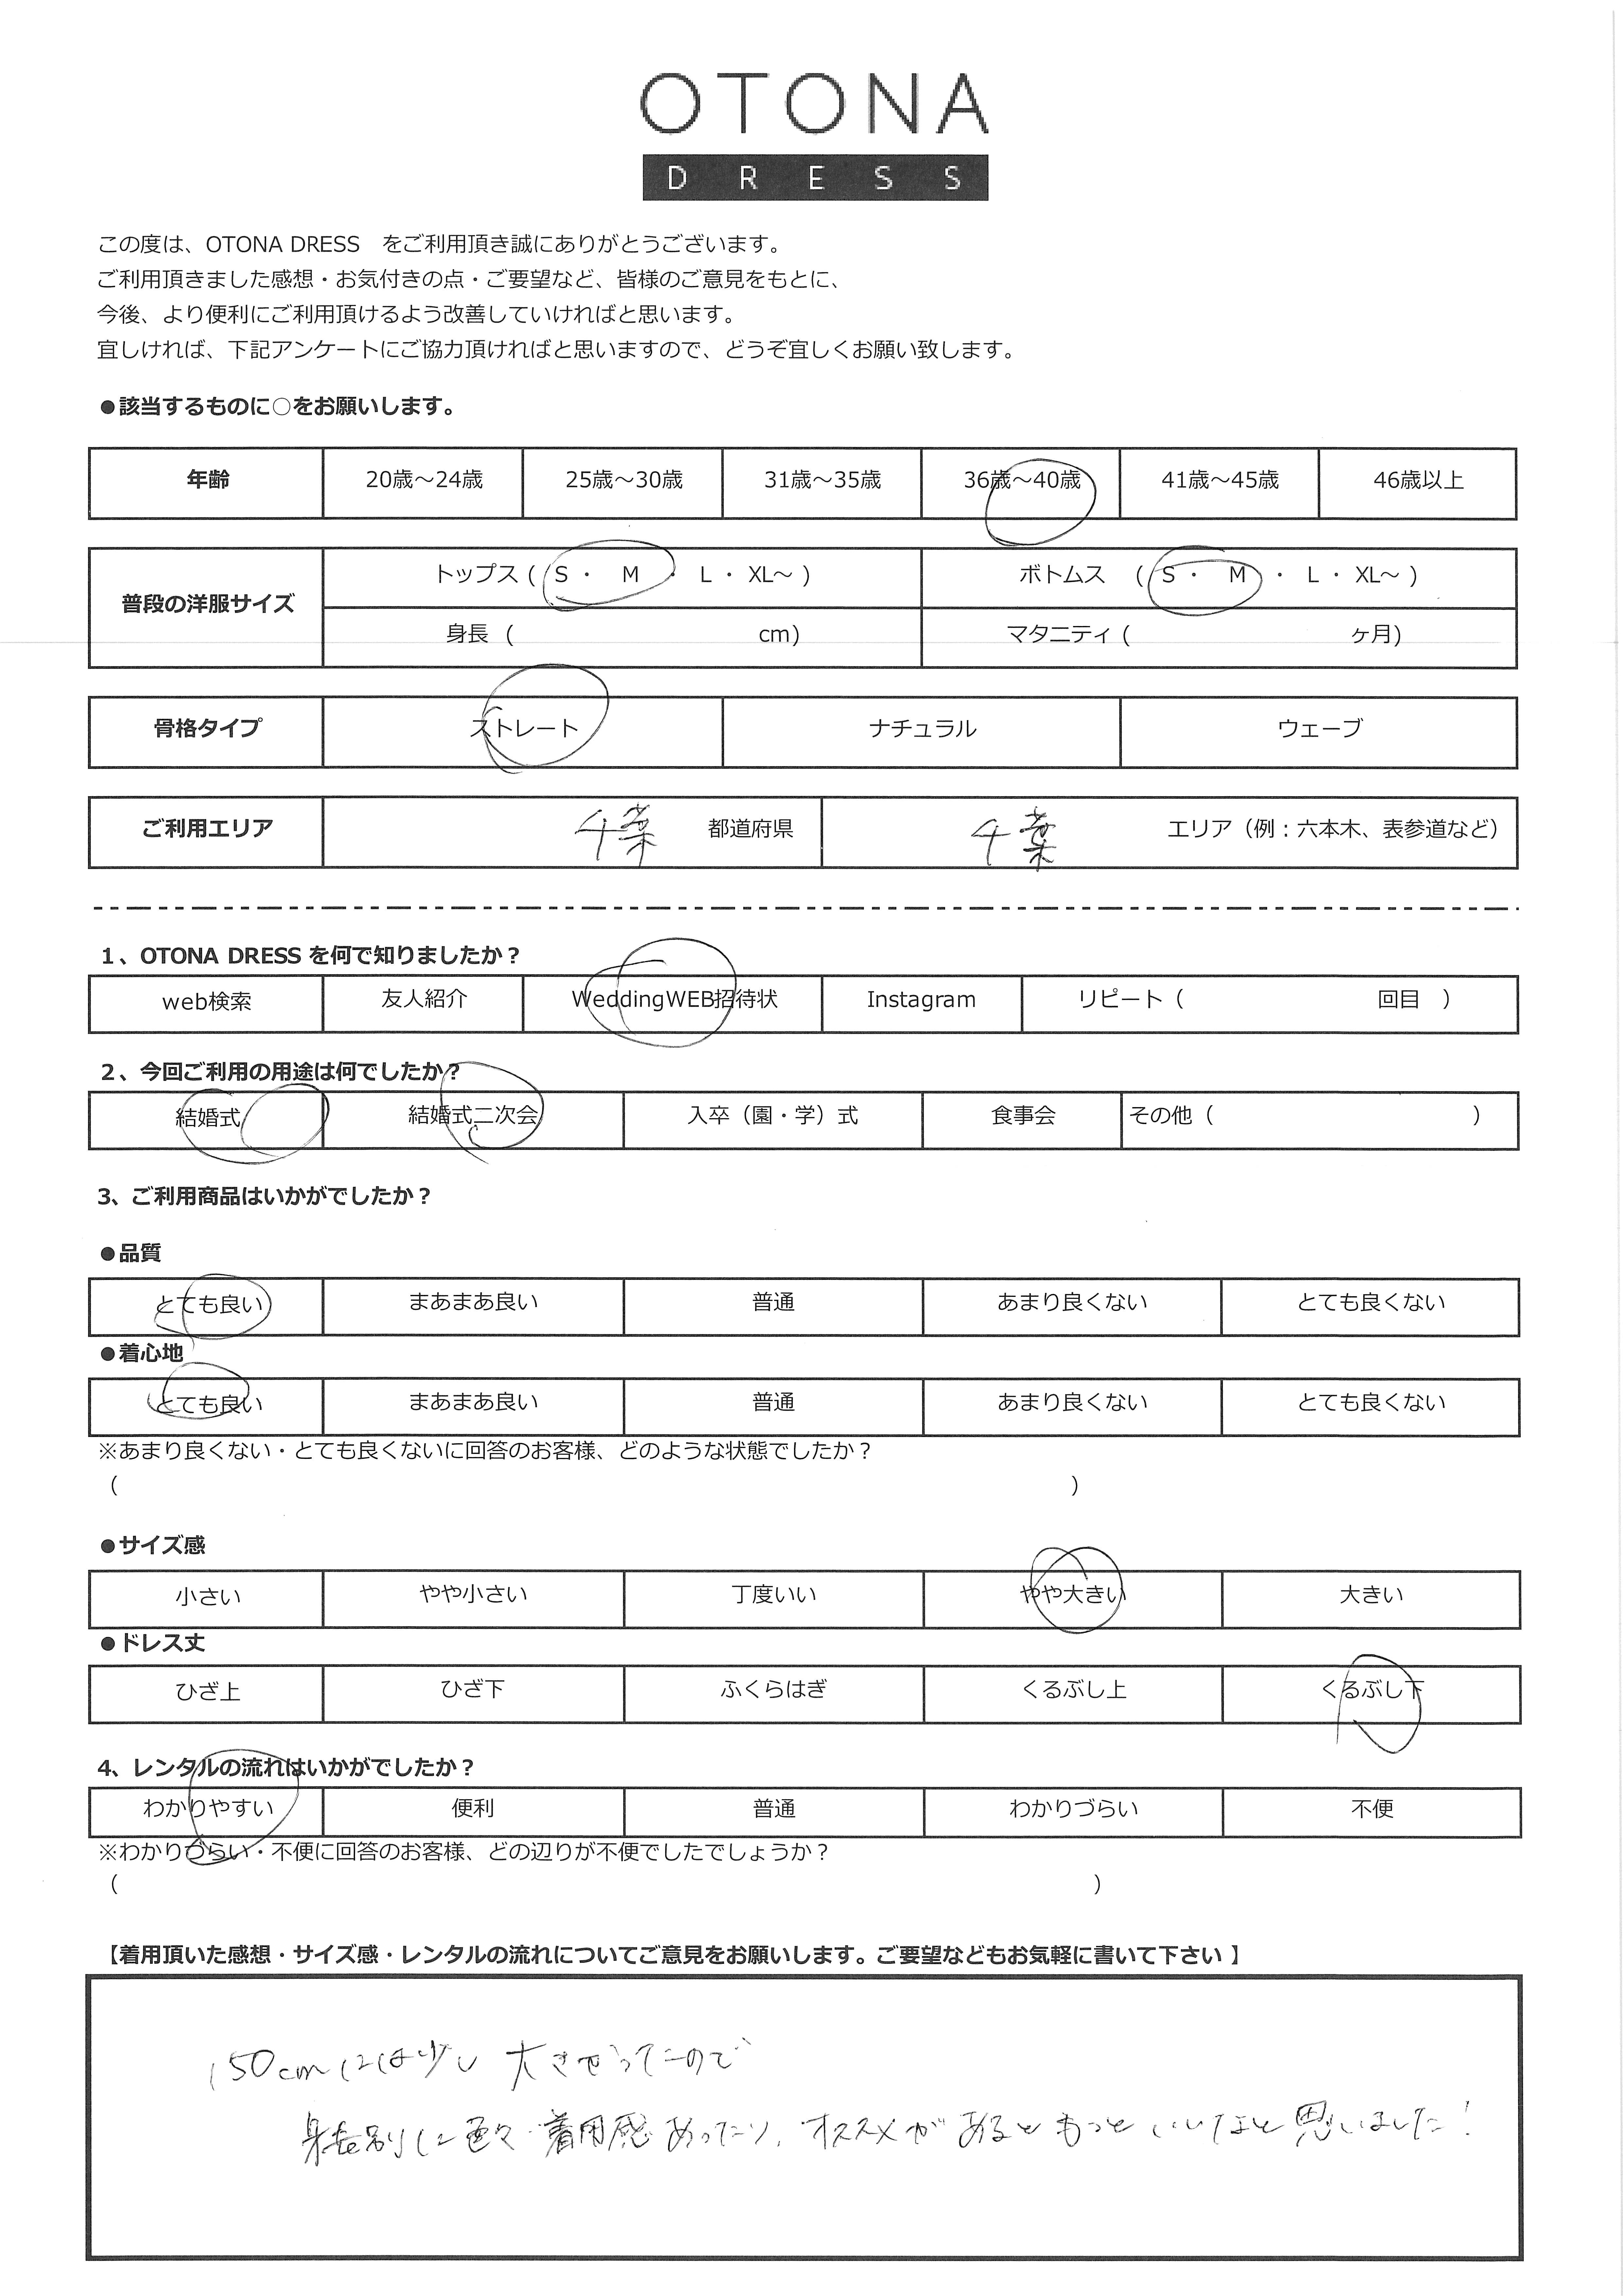 OTONA
DRESS
この度は、OTONA DRESS　をご利用頂き誠にありがとうございます。
ご利用頂きました感想・お気付きの点・ご要望など、皆様のご意見をもとに、
今後、より便利にご利用頂けるよう改善していければと思います。
宜しければ、下記アンケートにご協力頂ければと思いますので、どうぞ宜しくお願い致します。
●該当するものに○をお願いします。
年齢 20歳～24歳 25歳～30歳 31歳～35歳 36歳～40歳 41歳～45歳 46歳以上
普段の洋服サイズ トップス ( S ・ M ・ L ・ XL～ ) ボトムス ( S ・ M ・ L ・ XL～ )
身長 ( cm) マタニティ ( ヶ月)
骨格タイプ ストレート ナチュラル ウェーブ
ご利用エリア 千葉 都道府県 千葉 エリア（例：六本木、表参道など）
1、OTONA DRESS を何で知りましたか？
web検索 友人紹介 WeddingWEB招待状 Instagram リピート（ 回目 ）
2、今回ご利用の用途は何でしたか？
結婚式 結婚式二次会 入卒（園・学）式 食事会 その他（ ）
3、ご利用商品はいかがでしたか？
●品質
とても良い まあまあ良い 普通 あまり良くない とても良くない
●着心地
とても良い まあまあ良い 普通 あまり良くない とても良くない
※あまり良くない・とても良くないに回答のお客様、どのような状態でしたか？
（ ）
●サイズ感
小さい やや小さい 丁度いい やや大きい 大きい
●ドレス丈
ひざ上 ひざ下 ふくらはぎ くるぶし上 くるぶし下
4、レンタルの流れはいかがでしたか？
わかりやすい 便利 普通 わかりづらい 不便
※わかりづらい・不便に回答のお客様、どの辺りが不便でしたでしょうか？
（ ）
【着用頂いた感想・サイズ感・レンタルの流れについてご意見をお願いします。ご要望などもお気軽に書いて下さい 】
150cmには少し 大きかったので
身長別に色々 着用感あったり、オススメがあるともっといいなと思いました！